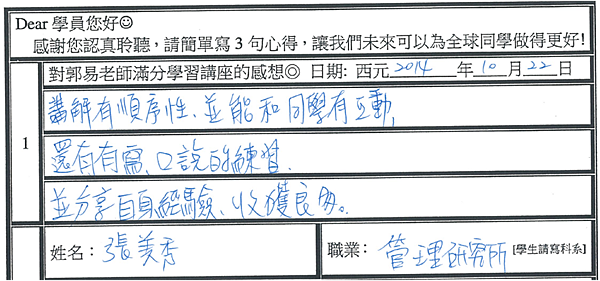 Dear 學員您好☺
感謝您認真聆聽，請簡單寫 3 句心得，讓我們未來可以為全球同學做得更好!
對郭易老師滿分學習講座的感想◎ 日期: 西元 2014 年 10 月 22 日
1
講解有順序性、並能和同學有互動,
還有有寫、口說的練習.
並分享自身經驗、收獲良多。
姓名：張美秀
職業： 管理研究所 [學生請寫科系]